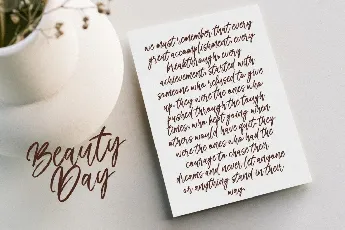 we must remember that every
great accomplishment, every
breakthrough, every
achievement, started with
someone who refused to give
up. they were the ones who
pushed through the tough
times, who kept going when
others would have quit. they
were the ones who had the
courage to chase their
dreams and never let anyone
or anything stand in their
way.
Beauty
Day